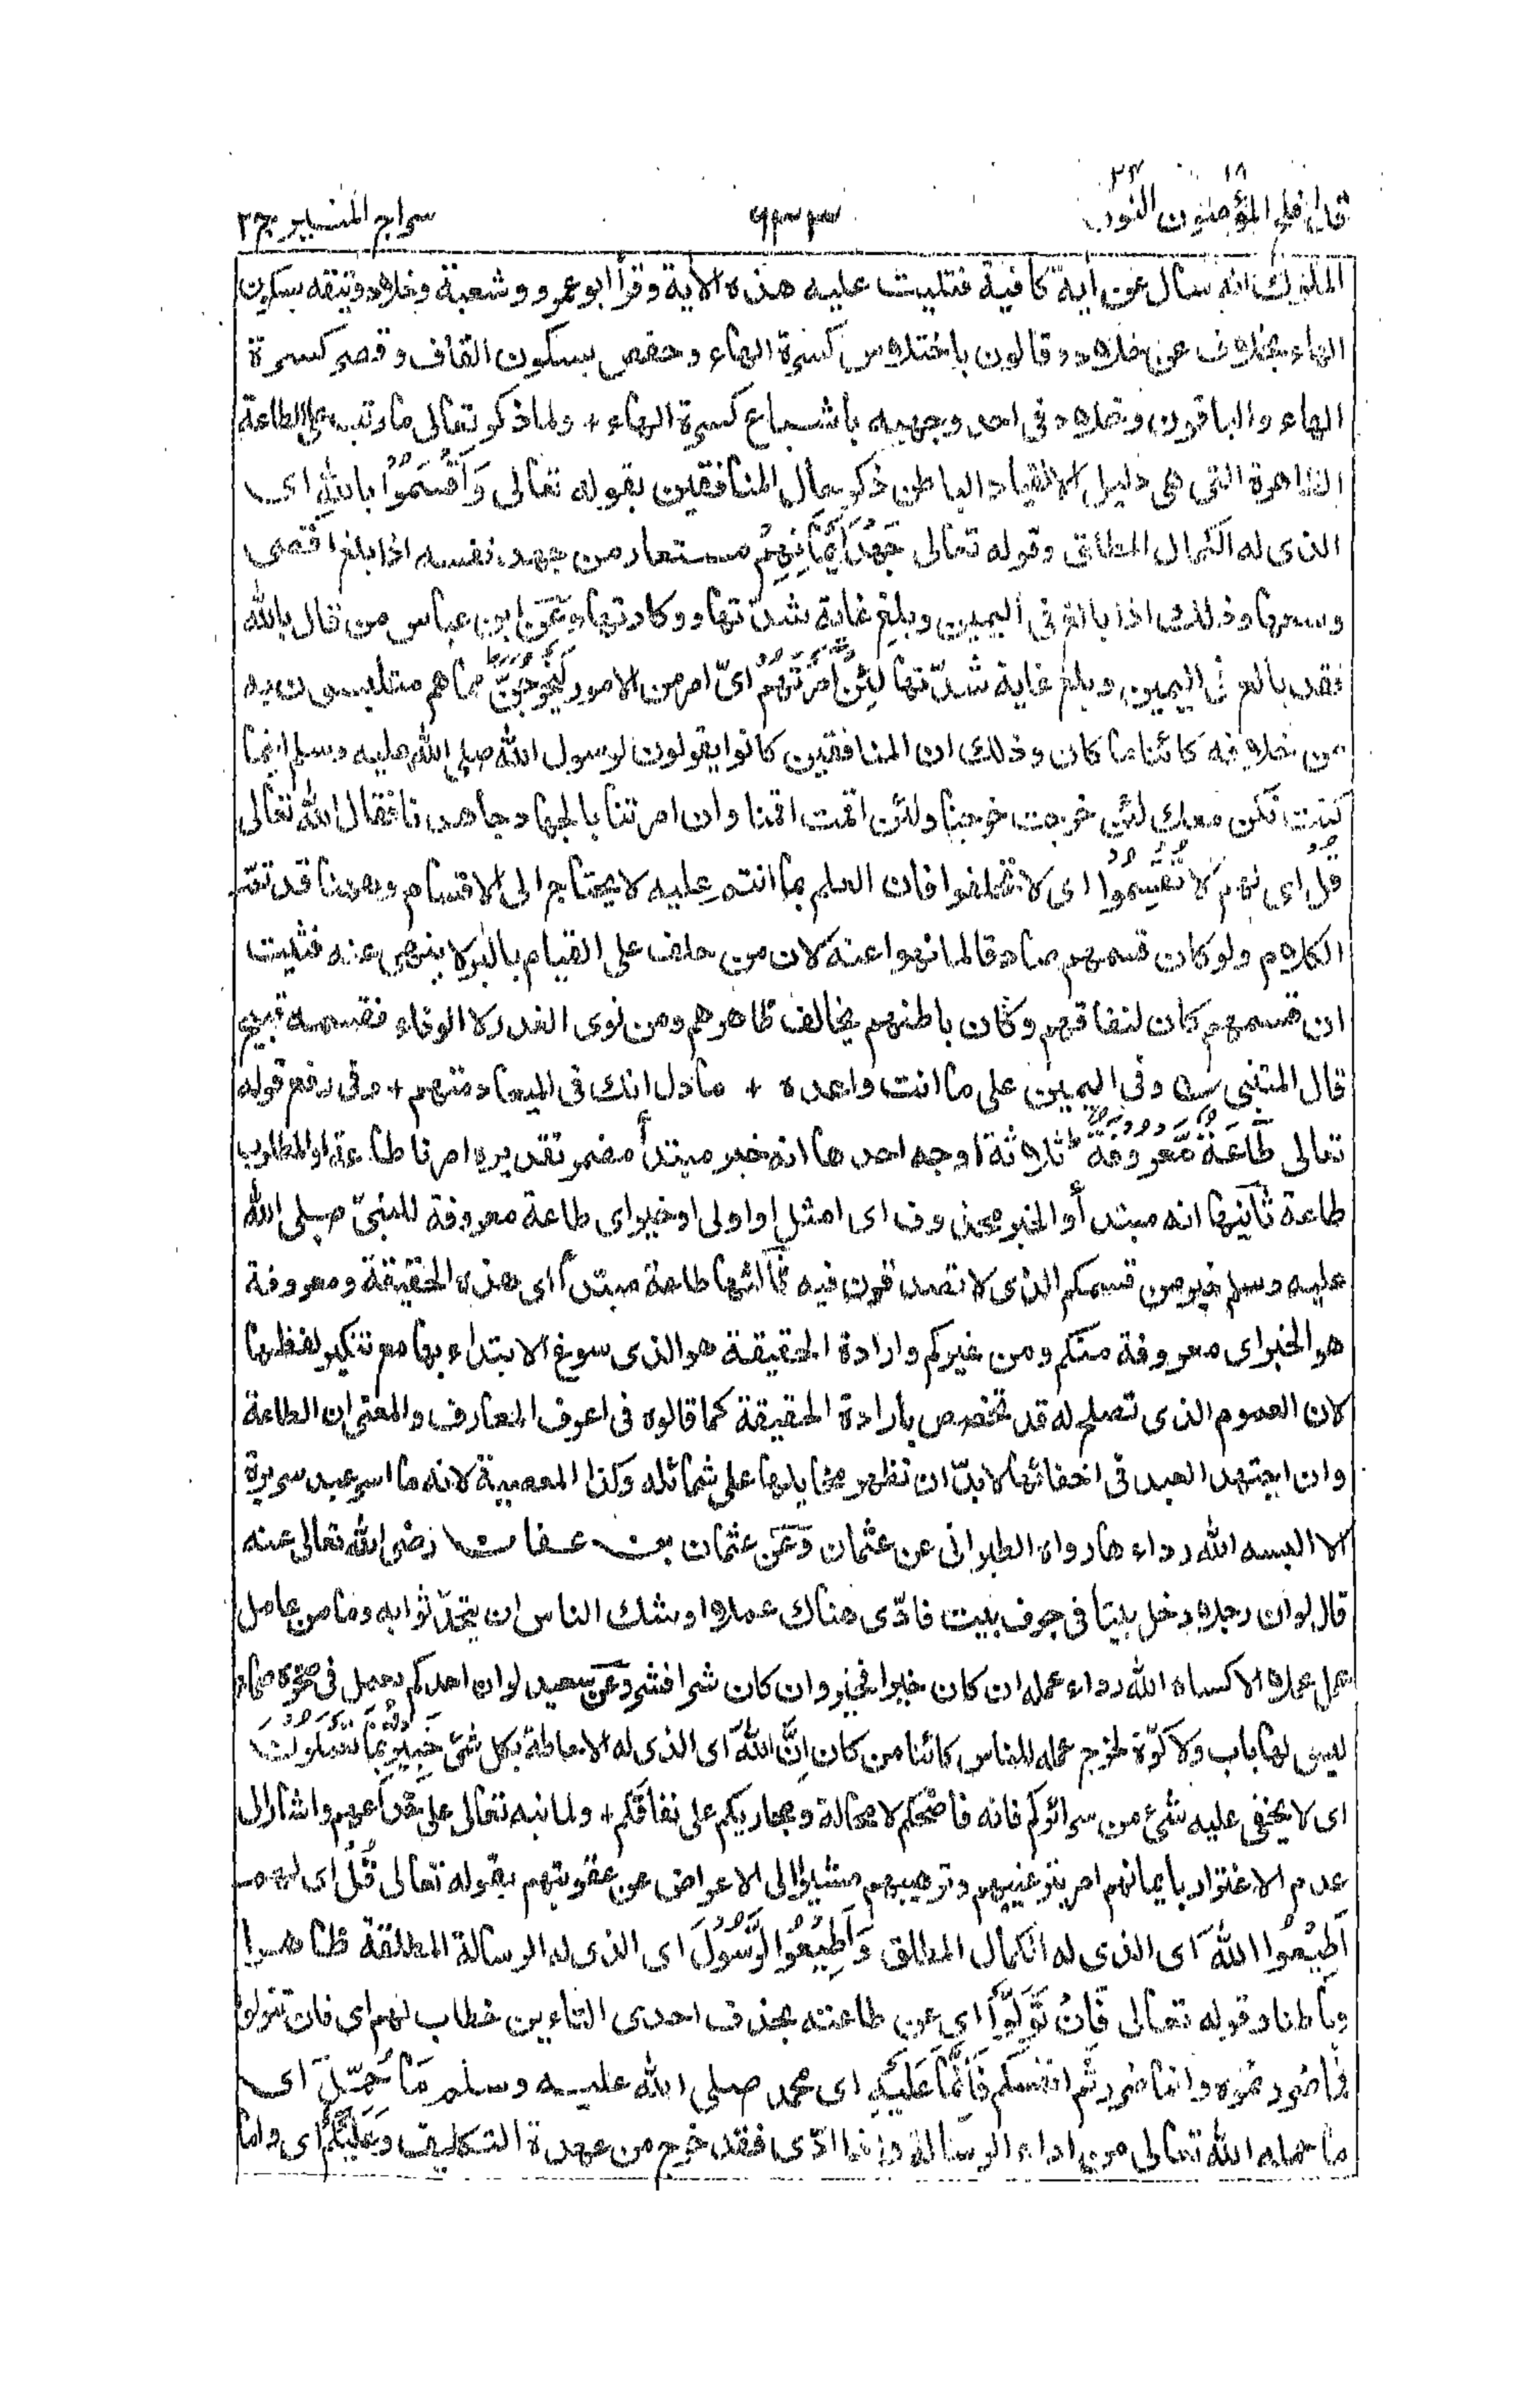 قد افلح المؤمنون ١٨ النور ٢٤
٦٣٣
سراج المنير ج ٢
الملوك انه سال عن اية كافية فتليت عليه هذه الاية وقرأ ابو عمرو وشعبة وخلاد ويتقه بسكون
الهاء بخلاف عن خلاد وقالون باختلاس كسرة الهاء وحفص بسكون القاف وقصر كسرة
الهاء والباقون وخلاد فى احد وجهيه باشباع كسرة الهاء + ولما ذكر تعالى ما رتب على الطاعة
الظاهرة التى هى دليل الانقياد الباطن ذكر حال المنافقين بقوله تعالى وَاَقْسَمُوْا بالله اى
الذى له الكمال المطلق وقوله تعالى جَهْدَ اَيْمَانِهِمْ مستعار من جهد نفسه اذا بلغ اقصى
وسعها وذلك اذا بالغ فى اليمين وبلغ غاية شدّتها ووكادتها وعَن ابن عباس من قال بالله
فقد بالغ فى اليمين وبلغ غاية شدّتها لَئِنْ اَمَرْتَهُمْ اىّ امر من الامور لَيَخْرُجُنَّ مما هم متلبسون به
من خلافه كائنا ما كان وذلك ان المنافقين كانوا يقولون لرسول الله صلى الله عليه وسلم اينما
كنت نكن معك لئن خرجت خرجنا ولئن اقمت اقمنا وان امرتنا بالجهاد جاهدنا فقال الله تعالى
قُلْ اى لهم لَا تُقْسِمُوْا اى لا تحلفوا فان العلم بما انتم عليه لا يحتاج الى الاقسام وههنا قد تمّ
الكلام ولو كان قسمهم صادقا لما نهوا عنه لان من حلف على القيام بالبر لا ينهى عنه فثبت
ان قسمهم كان لنفاقهم وكان باطنهم يخالف ظاهرهم ومن نوى الغدر لا الوفاء فقسمه قبيح
قال المتنبى ؎ وفى اليمين على ما انت واعده + ما دل انك فى الميعاد متهم + وفى رفع قوله
تعالى طَاعَةٌ مَّعْرُوْفَةٌ ط ثلاثة اوجه احدها انه خبر مبتدأ مضمر تقديره امرنا طاعة او المطلوب
طاعة ثانيها انه مبتدأ والخبر محذوف اى امثل او اولى او خير اى طاعة معروفة للنبىّ صلى الله
عليه وسلم خير من قسمكم الذى لا تصدقون فيه ثالثها طاعة مبتدأ اى هذه الحقيقة ومعروفة
هو الخبر اى معروفة منكم ومن غيركم وارادة الحقيقة هو الذى سوغ الابتداء بها مع تنكير لفظها
لان العموم الذى تصلح له قد تخصص بارادة الحقيقة كما قالوه فى اعرف المعارف والمعنى ان الطاعة
وان اجتهد العبد فى اخفائها لا بدّ ان تظهر مخايلها على شمائله وكذا المعصية لانه ما اسر عبد سريرة
الا البسه الله رداءها رواه الطبرانى عن عثمان وعَن عثمان بن عفان رضى الله تعالى عنه
قال لو ان رجلا دخل بيتا فى جوف بيت فادّى هناك عملا اوشك الناس ان يتحدّثوا به وما من عامل
عمل عملا الا كساه الله رداء عمله ان كان خيرا فخير وان كان شرا فشر وعَن سعيد لو ان احدكم يعمل فى صخرة صماء
ليس لها باب ولا كوّة لخرج عمله للناس كائنا من كان اِنَّ اللهَ اى الذى له الاحاطة بكل شئ خَبِيْرٌ بِمَا تَعْمَلُوْنَ
اى لا يخفى عليه شئ من سرائركم فانه فاضحكم لا محالة ومجازيكم على نفاقكم + ولما نبه تعالى على خداعهم واشار الى
عدم الاغترار بايمانهم امر بترغيبهم وترهيبهم مشيرا الى الاعراض عن عقوبتهم بقوله تعالى قُلْ اى لهم
اَطِيْعُوا اللهَ اى الذى له الكمال المطلق وَاَطِيْعُوا الرَّسُوْلَ اى الذى له الرسالة المطلقة ظاهرا
وباطنا وقوله تعالى فَاِنْ تَوَلَّوْا اى عن طاعته بحذف احدى التاءين خطاب لهم اى فان تتولوا
فما ضررتموه وانما ضررتم انفسكم فَاِنَّمَا عَلَيْهِ اى محمد صلى الله عليه وسلم مَا حُمِّلَ اى
ما حمله الله تعالى من اداء الرسالة واذا ادّى فقد خرج من عهدة التكليف وَعَلَيْكُمْ اى واما